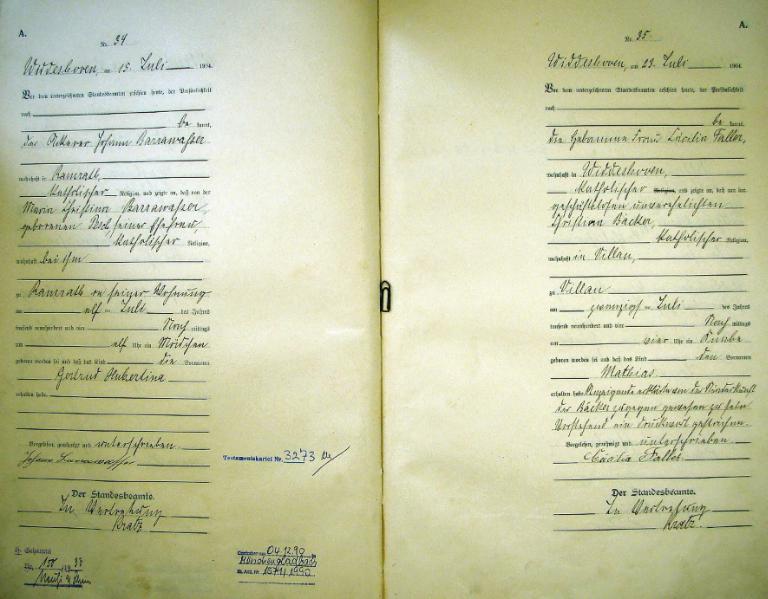 A.
Nr. 34
Widdeshoven, am 15. Juli 1904.
Vor dem unterzeichneten Standesbeamten erschien heute, der Persönlichkeit
nach
be kannt,
der Ackerer Johann Barrawasser
wohnhaft in Ramrath,
katholischer Religion, und zeigte an, daß von der
Maria Christina Barrawasser,
geborenen seiner Ehefrau,
katholischer Religion,
wohnhaft bei ihm
zu Ramrath in seiner Wohnung
am elf ten Juli des Jahres
tausend neunhundert und vier Nach mittags
um elf Uhr ein Mädchen
geboren worden sei und daß das Kind die Vornamen
Gertrud Hubertina
erhalten habe.
Vorgelesen, genehmigt und unterschrieben
Johann Barrawasser
Der Standesbeamte.
In Vertretung
Kratz
Testamentskartei Nr. 3273
04.12.90
Mönchengladbach
1990
A.
Nr. 35
Widdeshoven, am 23. Juli 1904.
Vor dem unterzeichneten Standesbeamten erschien heute, der Persönlichkeit
nach
be kannt,
die Hebamme Frau Cäcilia Faller,
wohnhaft in Widdeshoven,
katholischer Religion, und zeigte an, daß von der
geschäftslosen unverehelichten
Christina Bäcker,
katholischer Religion,
wohnhaft in Villau,
zu Villau
am zwanzigs ten Juli des Jahres
tausend neunhundert und vier Nach mittags
um vier Uhr ein Knabe
geboren worden sei und daß das Kind den Vornamen
Mathias
erhalten habe. Anzeigende erklärte von der Niederkunft
der Bäcker zugegen gewesen zu sein
Vorstehend ein Druckwort gestrichen.
Vorgelesen, genehmigt und unterschrieben
Cäcilia Faller
Der Standesbeamte.
In Vertretung
Kratz.